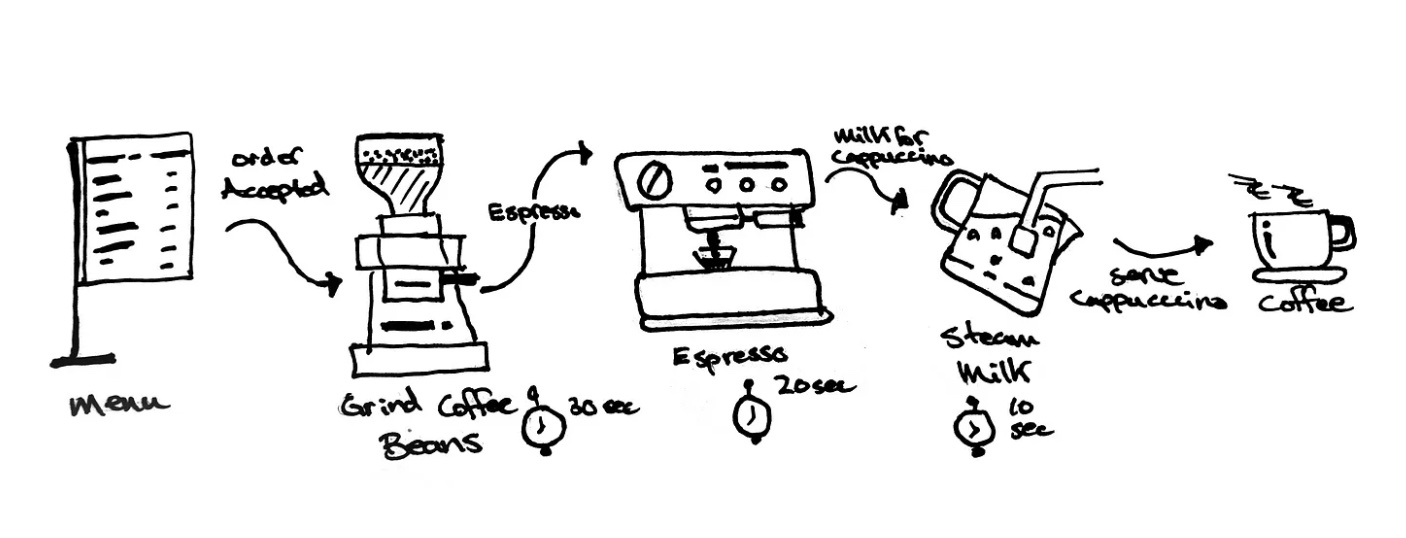 order
Accepted
menu
Grind Coffee
Beans
30 sec
Espresso
Espresso
20 sec
milk for
cappuccino
Steam
Milk
10
sec
serve
cappucccino
coffee